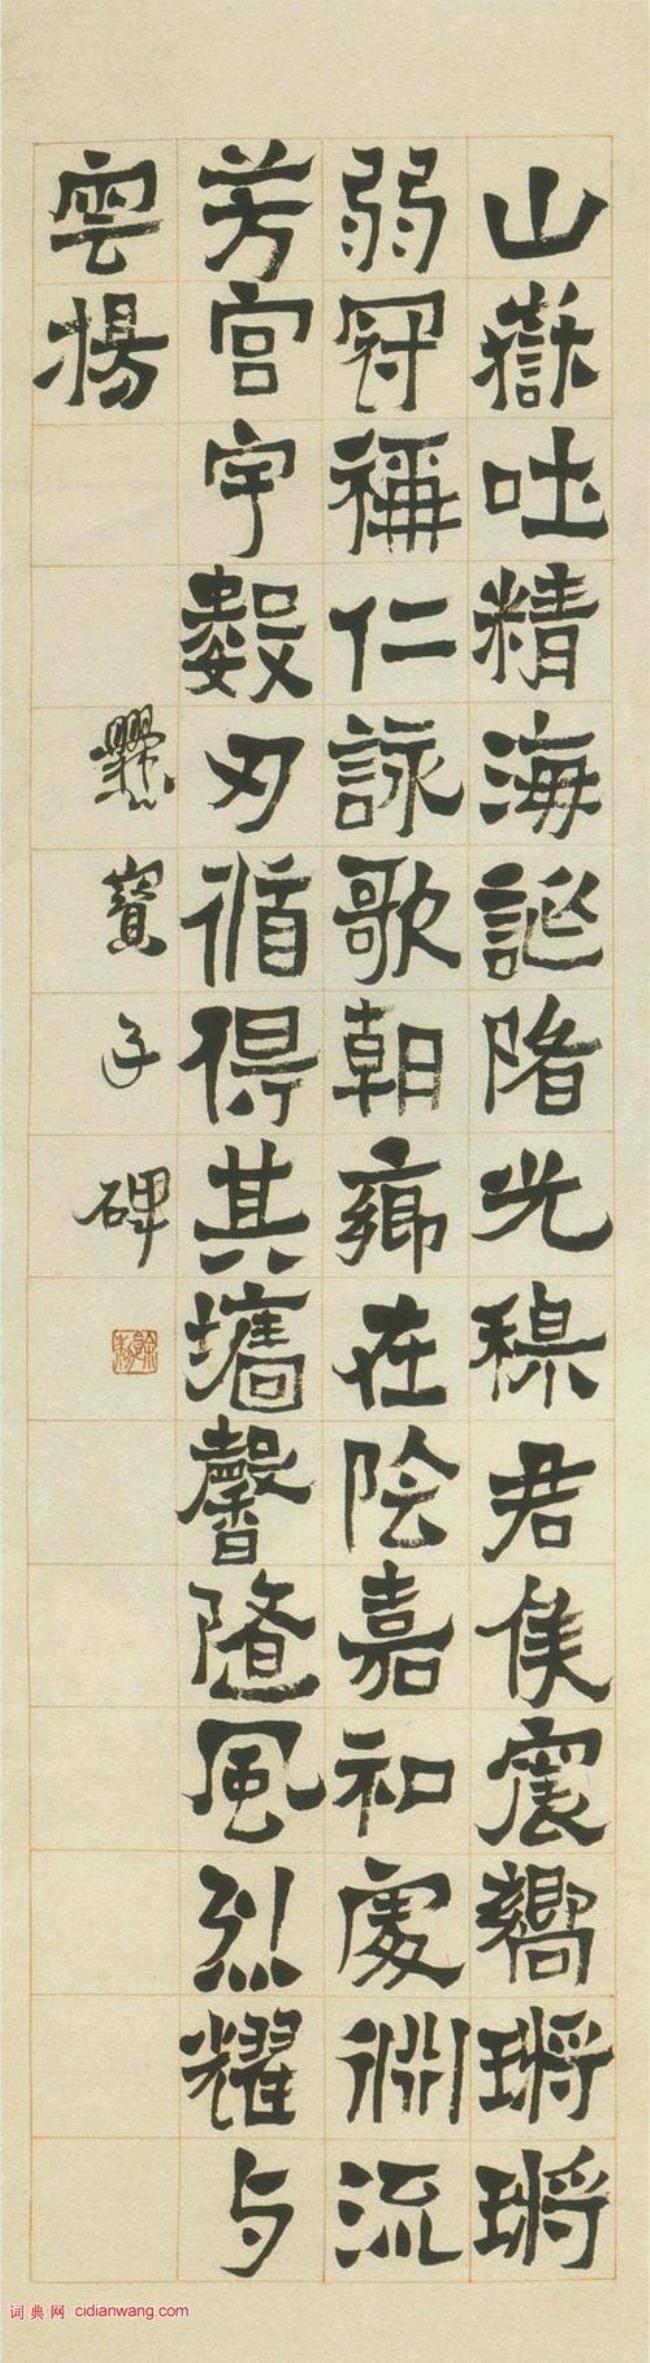 山嶽吐精海誕陏光穆君侯震嚮鏘鏘
弱冠稱仁詠歌朝鄉在陰嘉和處淵流
芳宮宇數刃循得其墻馨隨風烈耀与
雲揚
爨寶子碑
词典网 cidianwang.com